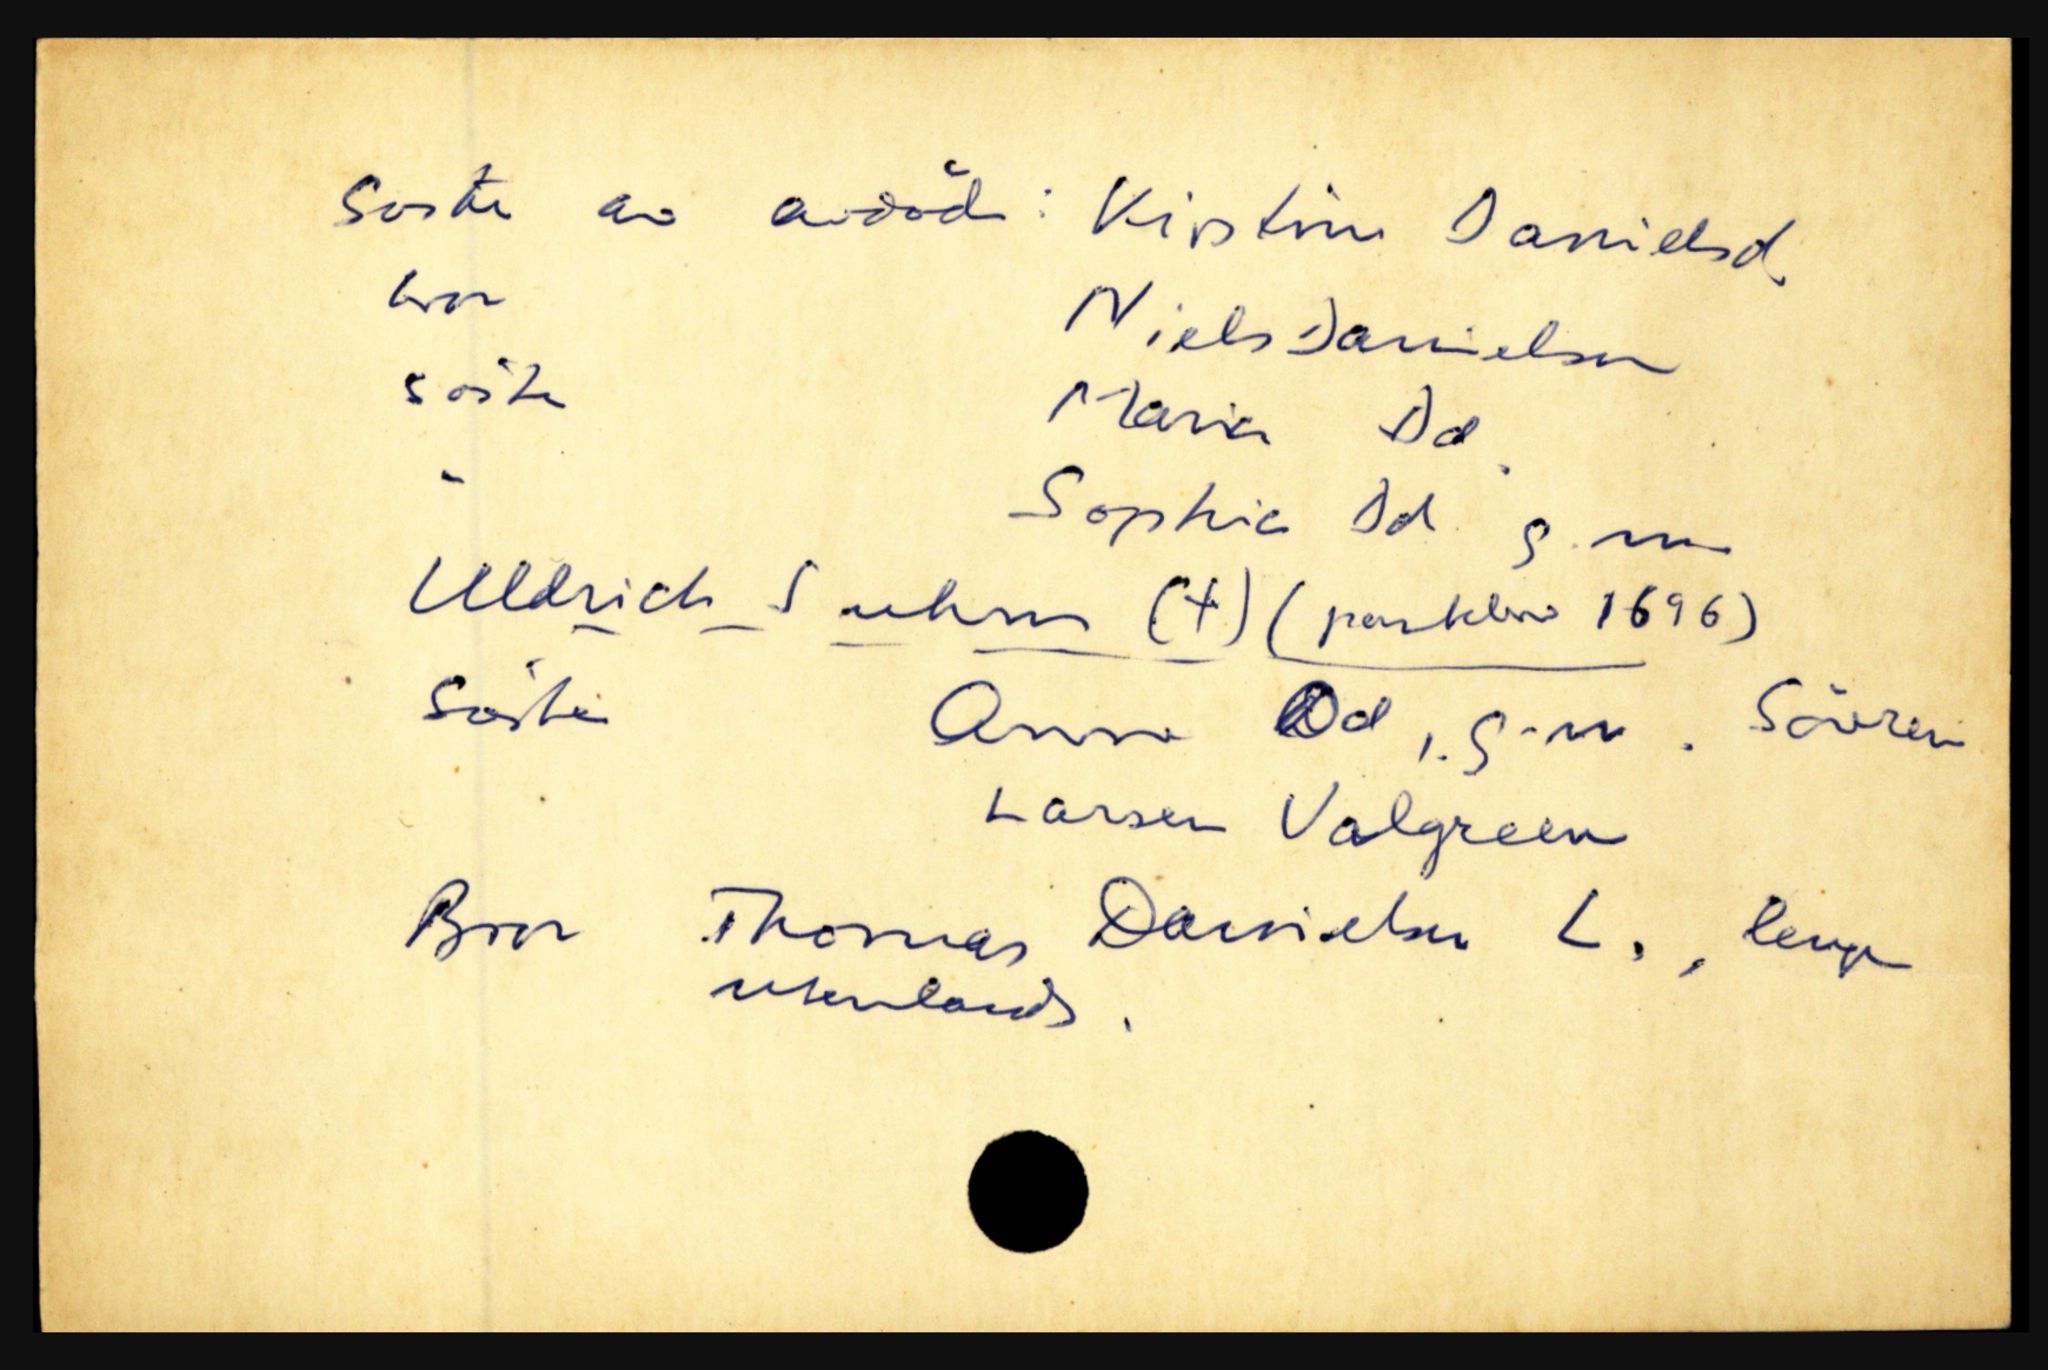 Söster av avdöde: Kirstine Danielsd.
bror Niels Danielsen
söster Maria Dd.
" Sophia Dd g.m.
Uldrich Suhm (+) (pantebrev 1696)
Söster Anna Dd, g.m. Sövren
Larsen Valgreen
Bror Thomas Danielsen L., lenge
utenlands.